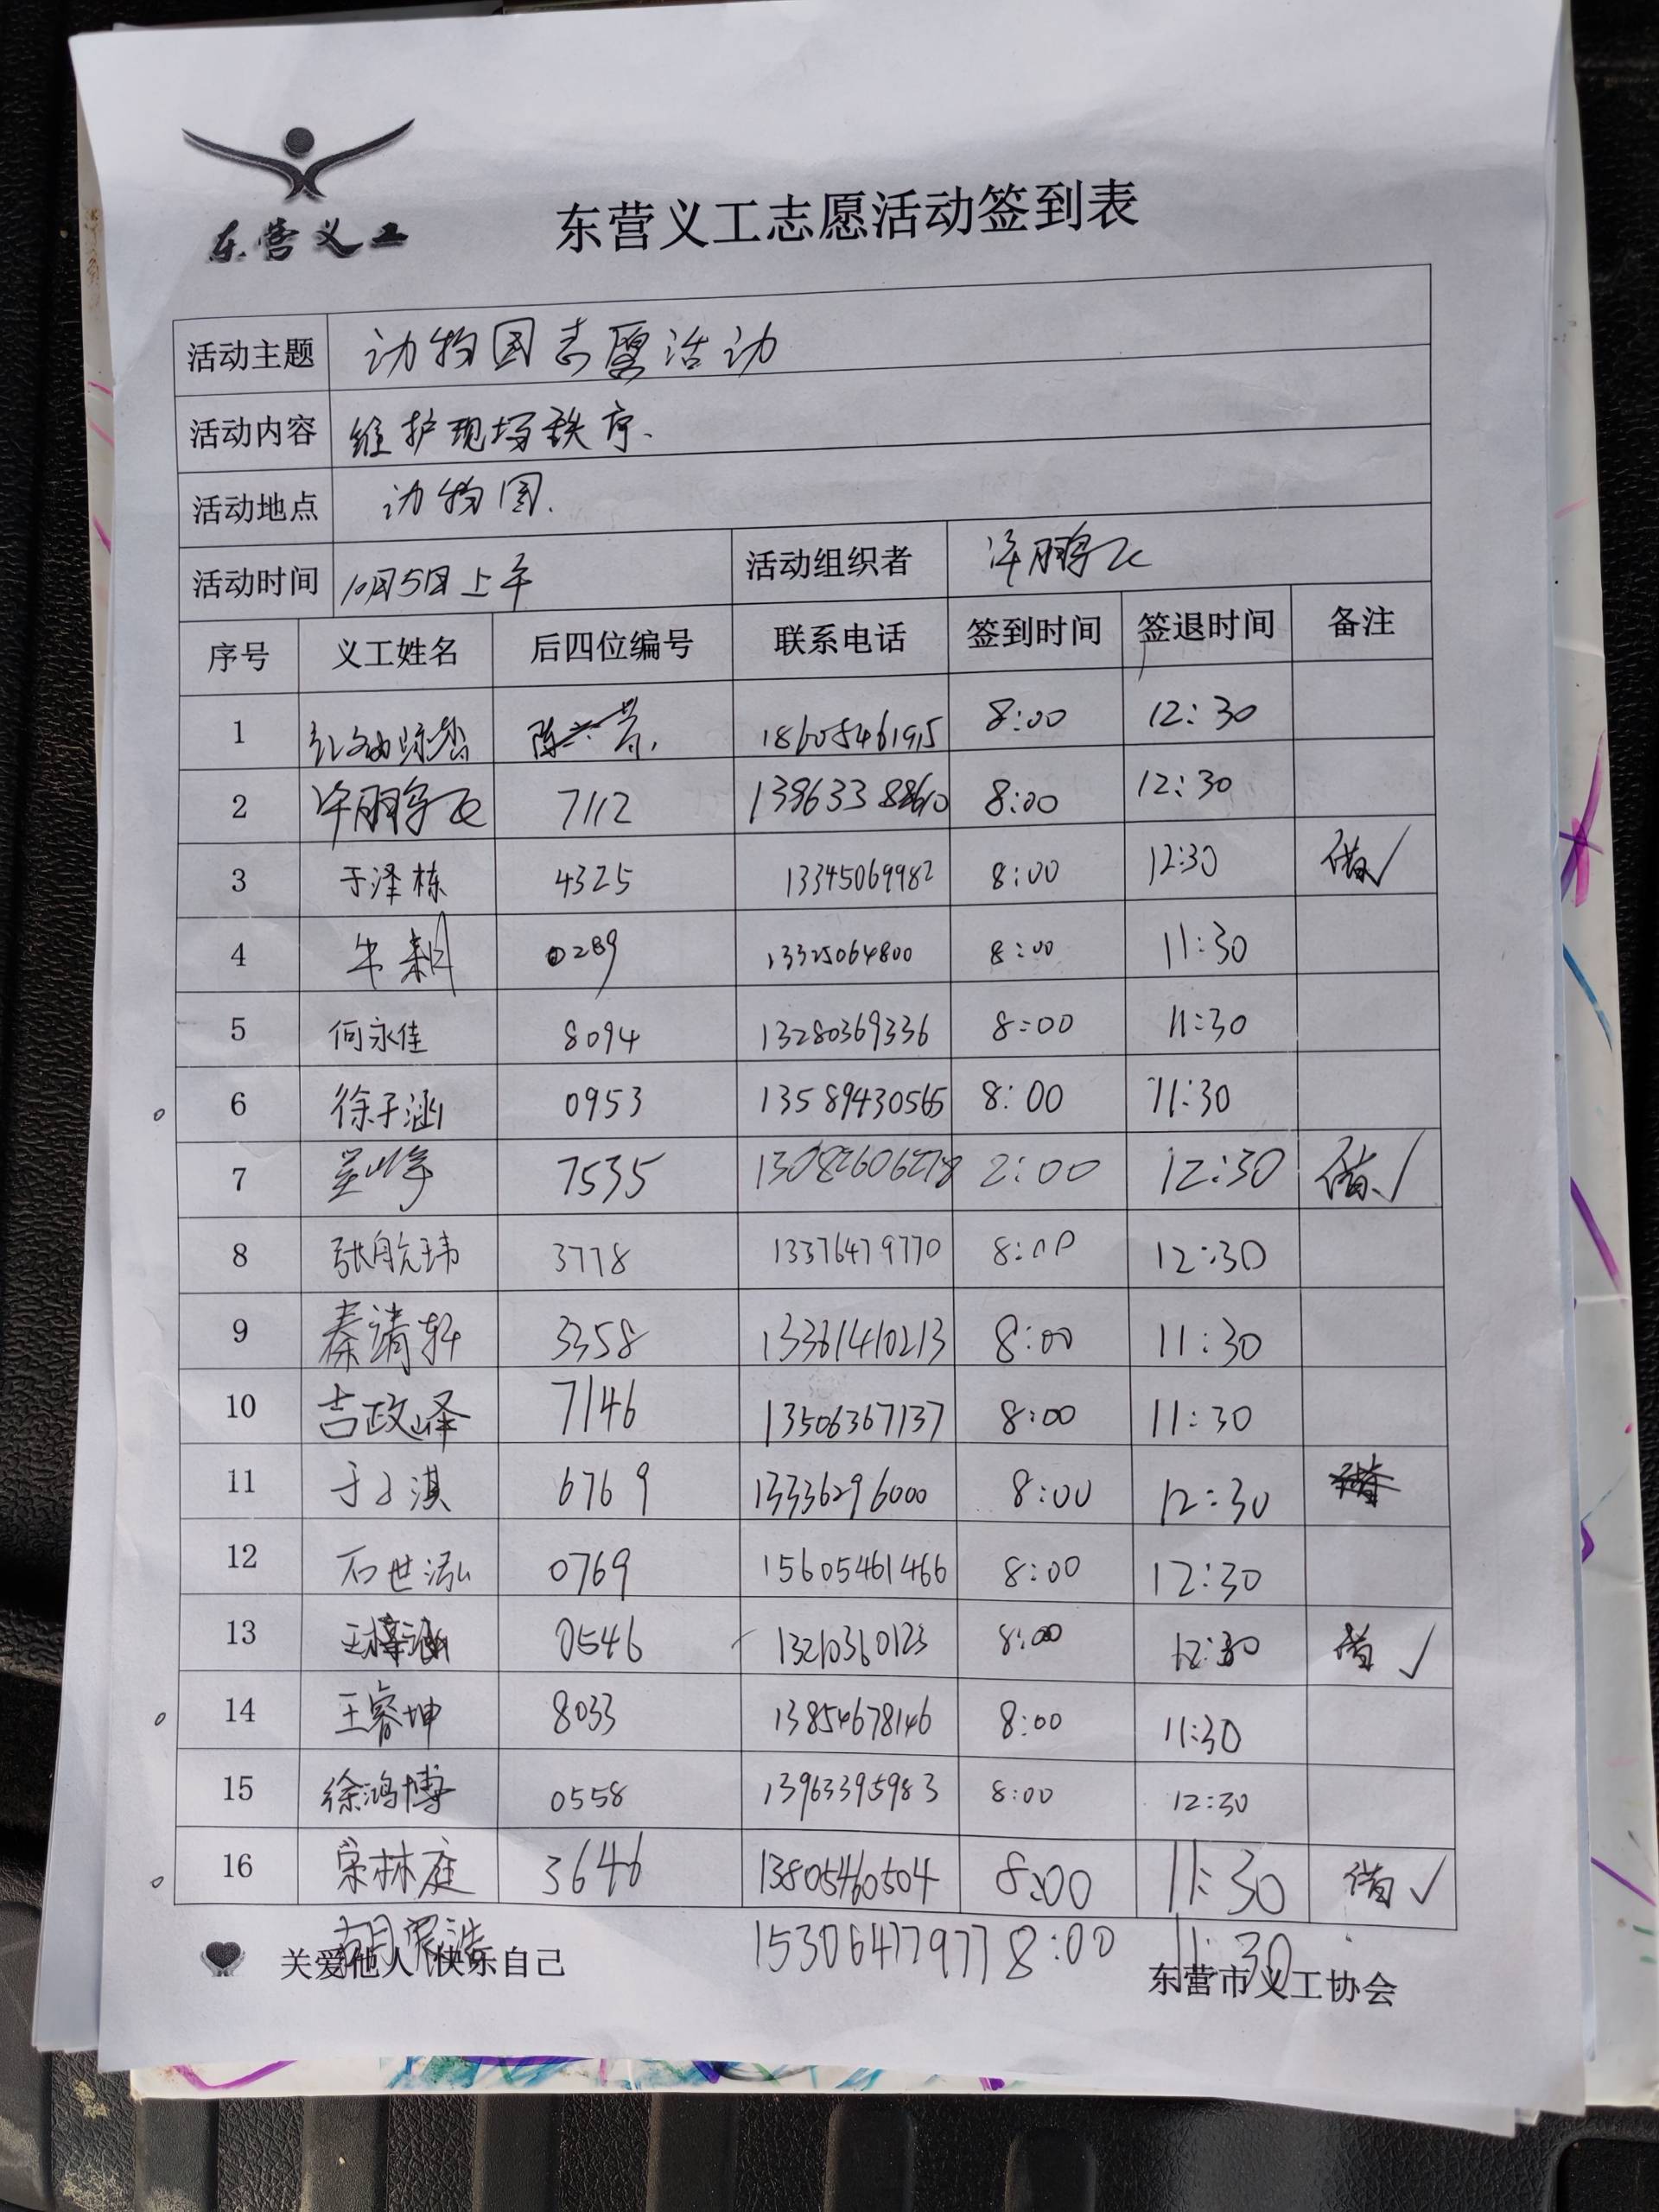 东营义工
东营义工志愿活动签到表
活动主题 动物园志愿活动
活动内容 维护现场秩序.
活动地点 动物园.
活动时间 10月5日上午 活动组织者 许鹏飞
序号 义工姓名 后四位编号 联系电话 签到时间 签退时间 备注
1 18605461915 8:00 12:30
2 许鹏飞 7112 8:00 12:30
3 于泽栋 4325 13345069982 8:00 12:30 借√
4 0289 13325064800 8:00 11:30
5 何永佳 8094 13280369336 8:00 11:30
6 徐子涵 0953 13589430565 8:00 11:30
7 7535 13082606278 2:00 12:30 借√
8 张航玮 3778 13376479770 8:00 12:30
9 秦靖轩 3358 13361410213 8:00 11:30
10 吉政峄 7146 13506367137 8:00 11:30
11 于子淇 6769 13336296000 8:00 12:30
12 石世泓 0769 15605461466 8:00 12:30
13 王梓涵 0546 13210360123 8:00 12:30 借√
14 王睿坤 8033 13854678146 8:00 11:30
15 徐鸿博 0558 13963395983 8:00 12:30
16 宋林庭 3646 13805460504 8:00 11:30 借√
15306477977 8:00 11:30
关爱他人 快乐自己 东营市义工协会